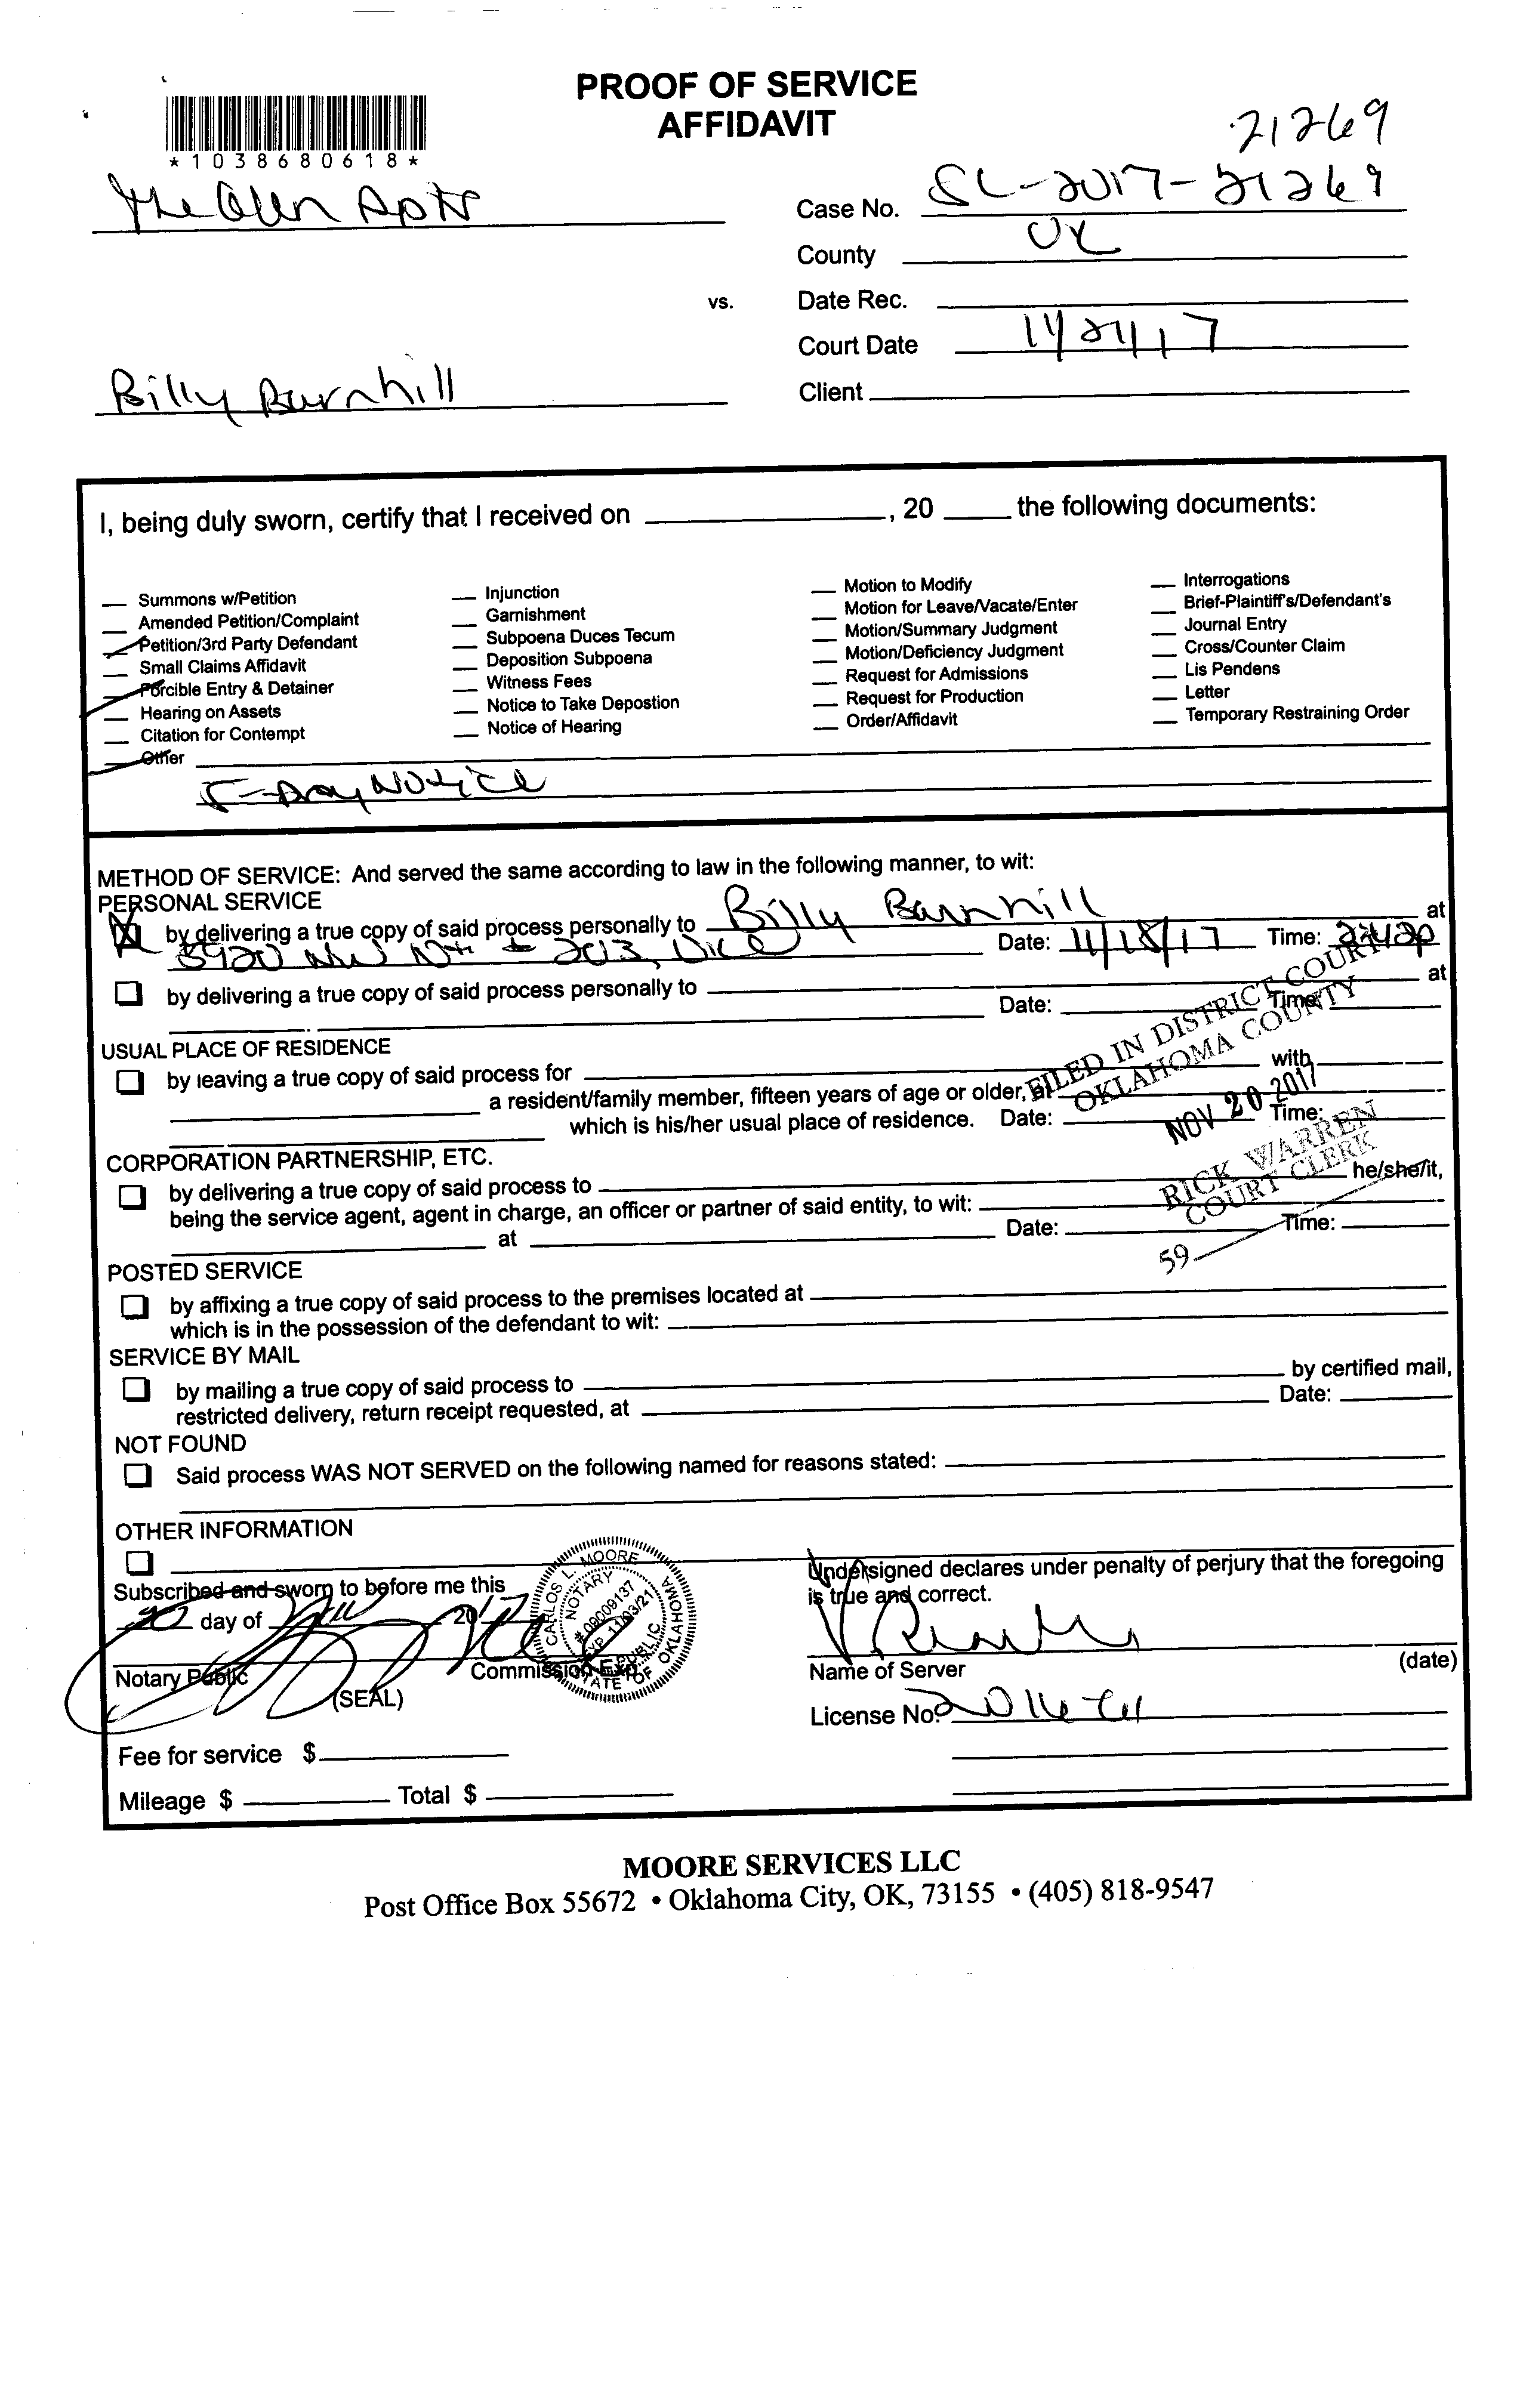 PROOF OF SERVICE
AFFIDAVIT
*1038680618*
21269
The Glen Apts
Case No. SC-2017-21269
County OK
vs. Date Rec.
Court Date 11/27/17
Billy Barnhill
Client
I, being duly sworn, certify that I received on ____, 20 ____ the following documents:
Summons w/Petition
Amended Petition/Complaint
Petition/3rd Party Defendant
Small Claims Affidavit
Forcible Entry & Detainer
Hearing on Assets
Citation for Contempt
Other
Injunction
Garnishment
Subpoena Duces Tecum
Deposition Subpoena
Witness Fees
Notice to Take Depostion
Notice of Hearing
Motion to Modify
Motion for Leave/Vacate/Enter
Motion/Summary Judgment
Motion/Deficiency Judgment
Request for Admissions
Request for Production
Order/Affidavit
Interrogations
Brief-Plaintiff's/Defendant's
Journal Entry
Cross/Counter Claim
Lis Pendens
Letter
Temporary Restraining Order
5-Day Notice
METHOD OF SERVICE: And served the same according to law in the following manner, to wit:
PERSONAL SERVICE
by delivering a true copy of said process personally to Billy Barnhill at
5920 NW # 203, Date: 11/18/17 Time:
by delivering a true copy of said process personally to at
Date: Time:
FILED IN DISTRICT COURT
OKLAHOMA COUNTY
NOV 20 2017
RICK WARREN
COURT CLERK
59
USUAL PLACE OF RESIDENCE
by leaving a true copy of said process for with
a resident/family member, fifteen years of age or older, at
which is his/her usual place of residence. Date: Time:
CORPORATION PARTNERSHIP, ETC.
by delivering a true copy of said process to he/she/it,
being the service agent, agent in charge, an officer or partner of said entity, to wit:
at Date: Time:
POSTED SERVICE
by affixing a true copy of said process to the premises located at
which is in the possession of the defendant to wit:
SERVICE BY MAIL
by mailing a true copy of said process to by certified mail,
restricted delivery, return receipt requested, at Date:
NOT FOUND
Said process WAS NOT SERVED on the following named for reasons stated:
OTHER INFORMATION
Subscribed and sworn to before me this
20 day of Nov 2017
Notary Public Commission Exp.
(SEAL)
CARLOS L. MOORE
NOTARY
# 09009137
EXP. 11/03/21
PUBLIC
STATE OF OKLAHOMA
Undersigned declares under penalty of perjury that the foregoing
is true and correct.
Name of Server (date)
License No.
Fee for service $
Mileage $ Total $
MOORE SERVICES LLC
Post Office Box 55672 • Oklahoma City, OK, 73155 • (405) 818-9547